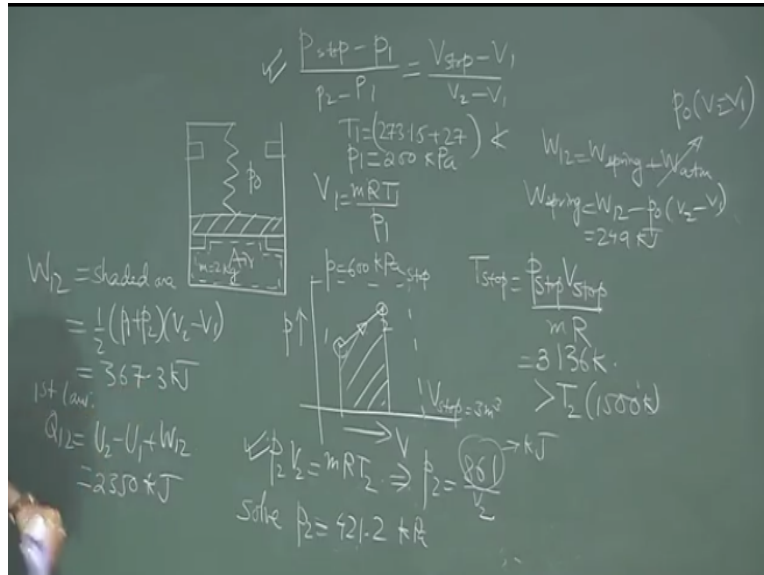 ✓ (Pstop – P1)/(p2 – P1) = (Vstop – V1)/(V2 – V1)
T1 = (273.15+27) K
P1 = 200 kPa
V1 = mRT1/P1
p0
Air
m=2kg
p0(V2–V1)
W12 = Wspring + Watm
Wspring = W12 – p0(V2–V1)
= 249 kJ
W12 = shaded area
= 1/2 (p1+p2)(V2–V1)
= 367.3 kJ
1st law:
Q12 = U2–U1+W12
= 2350 kJ
p=600 kPa stop
p↑
1
2
Vstop=3m³
→ V
Tstop = PstopVstop/mR
= 3136K.
> T2 (1500K)
✓ p2V2 = mRT2 ⇒ p2 = 861/V2 → kJ
solve p2 = 421.2 kPa